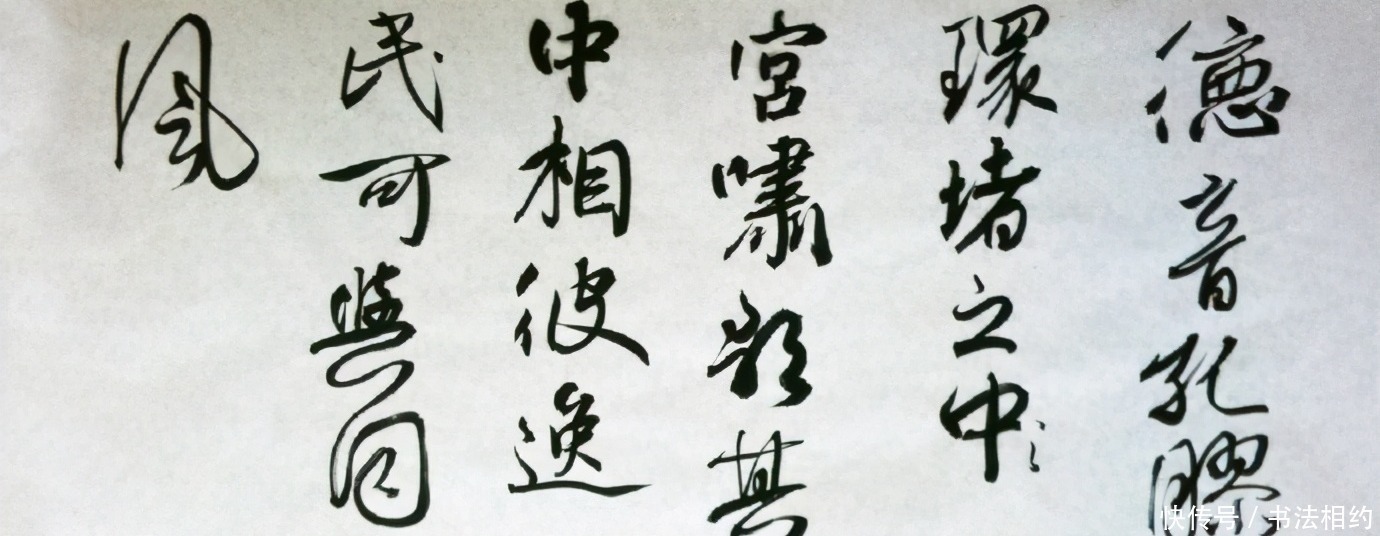 德音孔膠
環堵之中
宮嘯歌其
中相彼逸
民可與同
風
快传号 / 书法相约